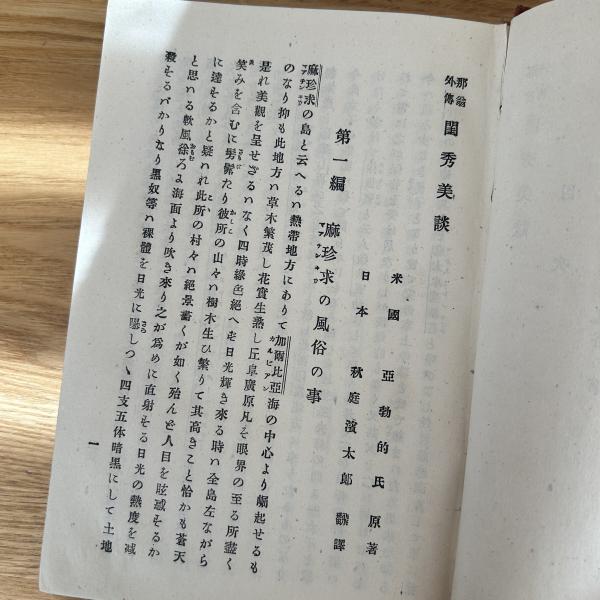 那翁外傳 閨秀美談
米國 亞勃的氏原著
日本 秋庭濱太郎飜譯
第一編 麻珍求の風俗の事
麻珍求の島と云へるハ熱帶地方にありて加爾比亞海の中心より崛起せるも
のなり抑も此地方ハ草木繁茂し花實生熟し丘阜廣原凡そ眼界の至る所盡く
是れ美觀を呈せざるハなく四時綠色絕へず日光輝き來る時ハ全島左ながら
笑みを含むに髣髴たり彼所の山々ハ樹木生ひ繁りて其高きこと恰かも蒼天
に達するかと疑ハれ此所の村々ハ絕景畫くが如く殆んど人目を眩惑するか
と思いる軟風徐ろよ海面より吹き來り之が爲めに直射する日光の熱度を減
殺するバかりなり黑奴等ハ裸體を日光に曝しつゝ四支五体暗黑にして土地
一